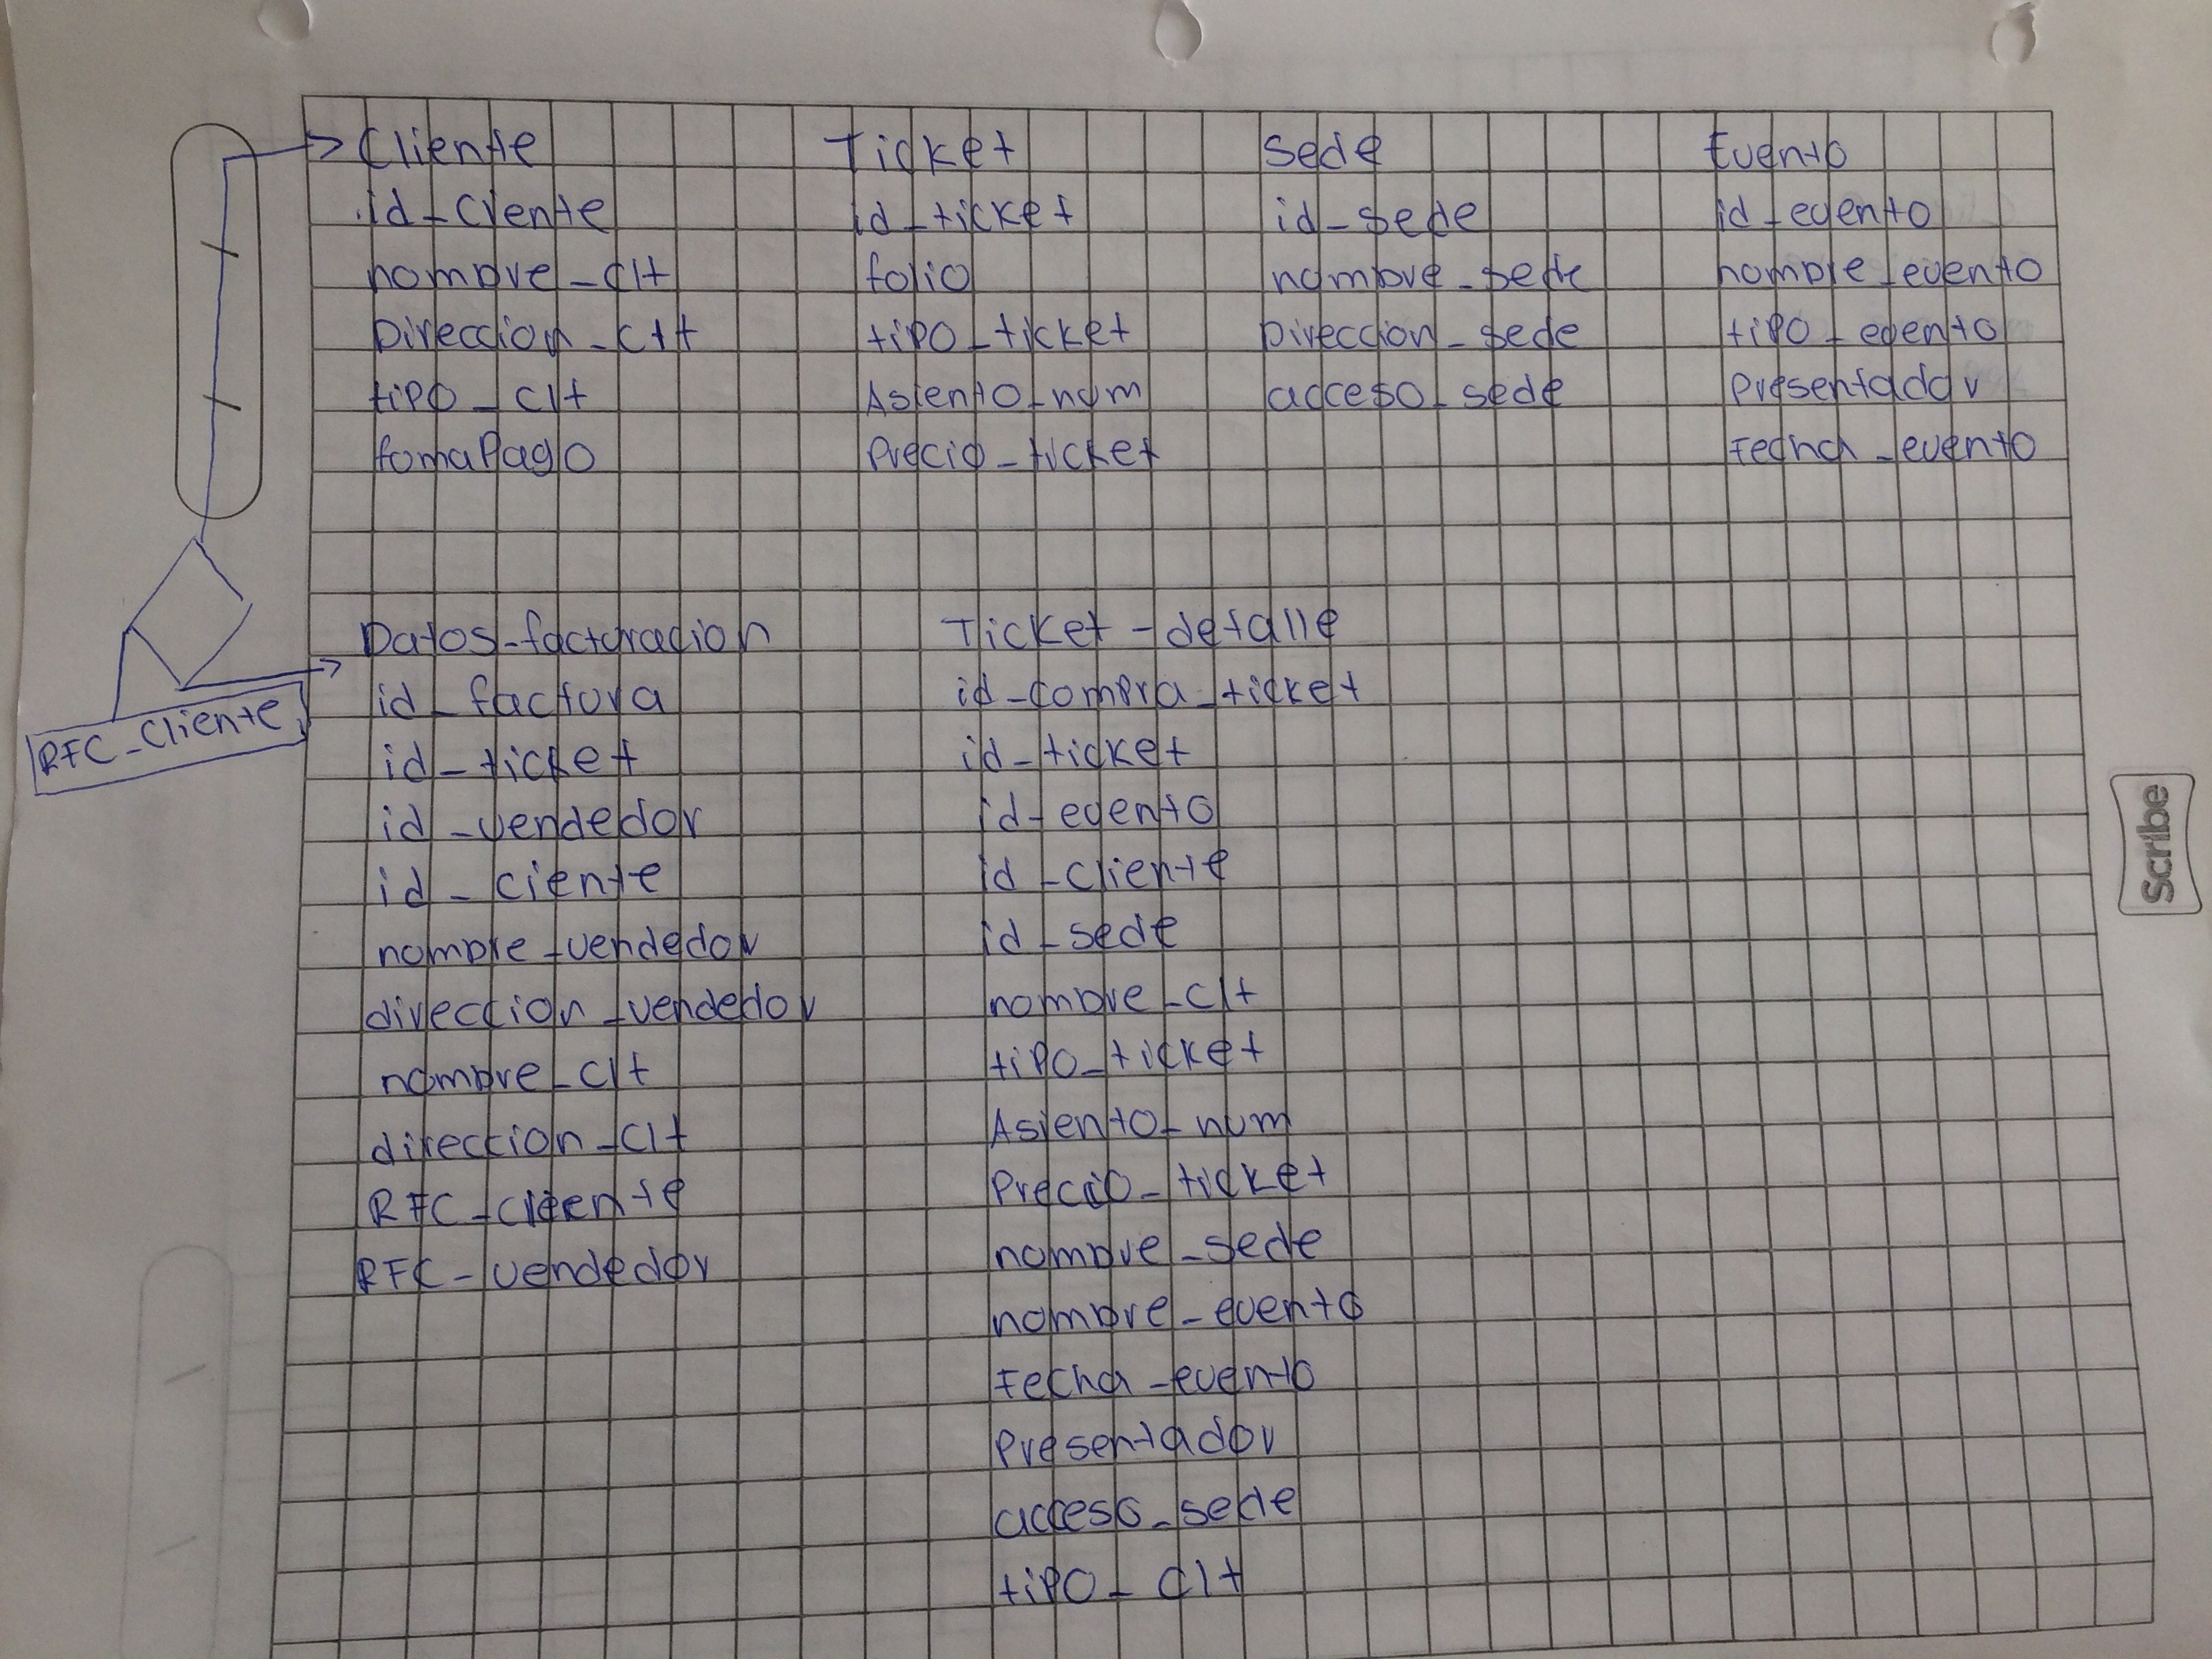 Cliente
id_Cliente
nombre_clt
Direccion_clt
tipo_clt
fomaPago
Ticket
id_ticket
folio
tipo_ticket
Asiento_num
Precio_ticket
Sede
id_sede
nombre_sede
Direccion_sede
acceso_sede
Evento
id_evento
nombre_evento
tipo_evento
Presentador
Fecha_evento
RFC_Cliente
Datos_facturacion
id_factura
id_ticket
id_vendedor
id_ciente
nombre_vendedor
direccion_vendedor
nombre_clt
direccion_clt
RFC_cliente
RFC_vendedor
Ticket_detalle
id_compra_ticket
id_ticket
id_evento
id_Cliente
id_sede
nombre_clt
tipo_ticket
Asiento_num
Precio_ticket
nombre_sede
nombre_evento
Fecha_evento
Presentador
acceso_sede
tipo_clt
Scribe